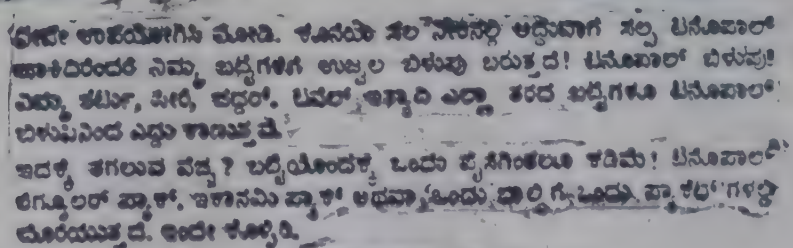 ನೀವೇ ಉಪಯೋಗಿಸಿ ನೋಡಿ. ಕೊನೆಯ ಸಲ ನೀರಿನಲ್ಲಿ ಅದ್ದುವಾಗ ಸ್ವಲ್ಪ ಟಿನೊಪಾಲ್
ಹಾಕಿದಿರೆಂದರೆ ನಿಮ್ಮ ಬಟ್ಟೆಗಳಿಗೆ ಉಜ್ವಲ ಬಿಳುಪು ಬರುತ್ತದೆ! ಟಿನೊಪಾಲ್ ಬಿಳುಪು!
ನಿಮ್ಮ ಶರ್ಟು, ಸೀರೆ, ಚದ್ದರ್, ಟವೆಲ್ ಇತ್ಯಾದಿ ಎಲ್ಲಾ ತರದ ಬಟ್ಟೆಗಳೂ ಟಿನೊಪಾಲ್
ಬಿಳುಪಿನಿಂದ ಎದ್ದು ಕಾಣುತ್ತವೆ.
ಇದಕ್ಕೆ ತಗಲುವ ವೆಚ್ಚ? ಬಟ್ಟೆಯೊಂದಕ್ಕೆ ಒಂದು ಪೈಸೆಗಿಂತಲೂ ಕಡಿಮೆ! ಟಿನೊಪಾಲ್
ರೆಗ್ಯೂಲರ್ ಪ್ಯಾಕ್, ಇಕಾನಮಿ ಪ್ಯಾಕ್ ಅಥವಾ ಒಂದು ಬಾಲ್ಟಿಗೆ ಒಂದು ಪ್ಯಾಕೆಟ್ ಗಳಲ್ಲಿ
ದೊರೆಯುತ್ತದೆ. ಇಂದೇ ಕೊಳ್ಳಿರಿ.